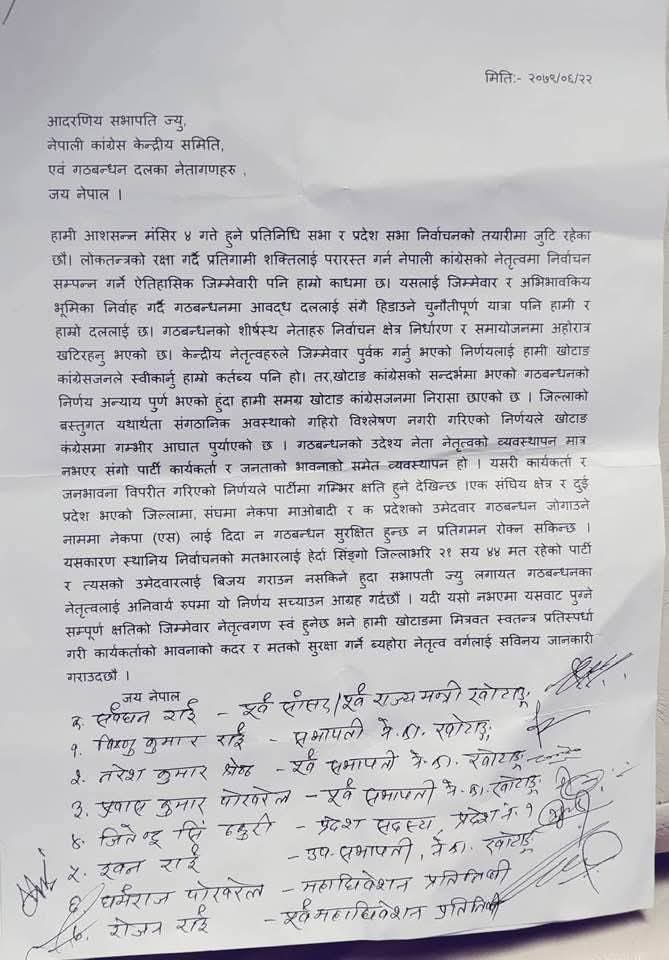 मिति:- २०७९/०६/२२
आदरणिय सभापति ज्यु,
नेपाली कांग्रेस केन्द्रीय समिति,
एवं गठबन्धन दलका नेतागणहरु ,
जय नेपाल ।
हामी आशसन्न मंसिर ४ गते हुने प्रतिनिधि सभा र प्रदेश सभा निर्वाचनको तयारीमा जुटि रहेका
छौं। लोकतन्त्रको रक्षा गर्दै प्रतिगामी शक्तिलाई परारस्त गर्न नेपाली कांग्रेसको नेतृत्वमा निर्वाचन
सम्पन्न गर्ने ऐतिहासिक जिम्मेवारी पनि हाम्रो काधमा छ। यसलाई जिम्मेवार र अभिभावकिय
भूमिका निर्वाह गर्दै गठबन्धनमा आवद्ध दललाई संगै हिडाउने चुनौतीपूर्ण यात्रा पनि हामी र
हाम्रो दललाई छ। गठबन्धनको शीर्षस्थ नेताहरु निर्वाचन क्षेत्र निर्धारण र समायोजनमा अहोरात्र
खटिरहनु भएको छ। केन्द्रीय नेतृत्वहरुले जिम्मेवार पुर्वक गर्नु भएको निर्णयलाई हामी खोटाङ
कांग्रेसजनले स्वीकार्नु हाम्रो कर्तब्य पनि हो। तर,खोटाङ कांग्रेसको सन्दर्भमा भएको गठबन्धनको
निर्णय अन्याय पुर्ण भएको हुंदा हामी समग्र खोटाङ कांग्रेसजनमा निरासा छाएको छ । जिल्लाको
बस्तुगत यथार्थता संगठानिक अवस्थाको गहिरो विश्लेषण नगरी गरिएको निर्णयले खोटाङ
कंग्रेसमा गम्भीर आघात पुर्याएको छ । गठबन्धनको उदेश्य नेता नेतृत्वको व्यवस्थापन मात्र
नभएर संगो पार्टी कार्यकर्ता र जनताको भावनाको समेत व्यवस्थापन हो । यसरी कार्यकर्ता र
जनभावना विपरीत गरिएको निर्णयले पार्टीमा गम्भिर क्षति हुने देखिन्छ ।एक संघिय क्षेत्र र दुई
प्रदेश भएको जिल्लामा, संघमा नेकपा माओबादी र क प्रदेशको उमेदवार गठबन्धन जोगाउने
नाममा नेकपा (एस) लाई दिदा न गठबन्धन सुरक्षित हुन्छ न प्रतिगमन रोक्न सकिन्छ ।
यसकारण स्थानिय निर्वाचनको मतभारलाई हेर्दा सिंङ्गो जिल्लाभरि २१ सय ४४ मत रहेको पार्टी
र त्यसको उमेदवारलाई बिजय गराउन नसकिने हुदा सभापती ज्यु लगायत गठबन्धनका
नेतृत्वलाई अनिवार्य रुपमा यो निर्णय सच्याउन आग्रह गर्दछौं । यदी यसो नभएमा यसवाट पुग्ने
सम्पूर्ण क्षतिको जिम्मेवार नेतृत्वगण स्वं हुनेछ भने हामी खोटाङमा मित्रवत स्वतन्त्र प्रतिस्पर्धा
गरी कार्यकर्ताको भावनाको कदर र मतको सुरक्षा गर्ने ब्यहोरा नेतृत्व वर्गलाई सविनय जानकारी
गराउदछौं ।
जय नेपाल
क. सर्वधन राई - पूर्व सांसद/पूर्व राज्य मन्त्री खोटाङ्ग
१. विष्णु कुमार राई - सभापती ने.का. खोटाङ्ग
२. तरेश कुमार श्रेष्ठ - पूर्व सभापती ने.का. खोटाङ्ग
३. प्रवास कुमार पोखरेल - पूर्व सभापती ने.का. खोटाङ्ग
४. जितेन्द्र सिं ठकुरी - प्रदेश सदस्य, प्रदेश नं. १
५. इवन राई - उप-सभापती, ने.का. खोटाङ्ग
६. धर्मराज पोखरेल - महाधिवेशन प्रतिनिधी
७. रोजन राई - पूर्व महाधिवेशन प्रतिनिधी